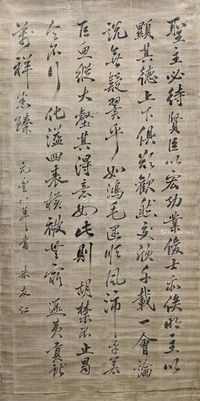 聖主必待賢臣以宏功業俊士亦俟明主以
顯其德上下俱欲歡然交欣千載一會論
說無疑翼乎如鴻毛遇順風沛乎若
巨魚縱大壑其得意如此則胡禁不止曷
令不行化溢四表橫被無窮遐夷貢獻
萬祥畢臻 元豐八年書 米友仁